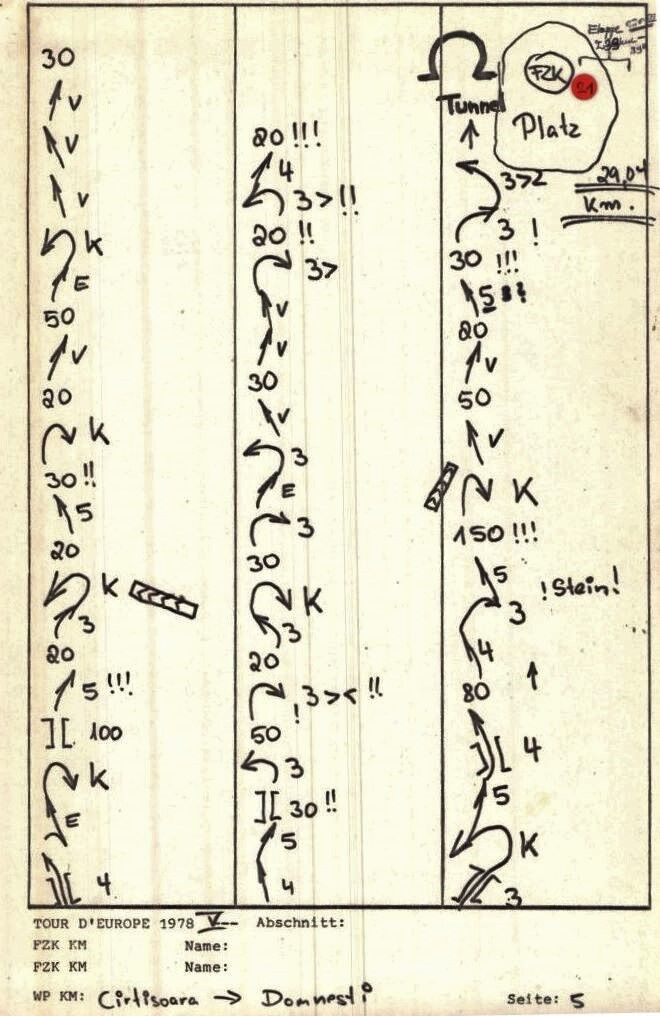 30
V
V
V
K
E
50
V
20
K
30!!
5
20
K
3
20
5!!!
][ 100
K
E
][ 4
20!!!
4
3>!!
20!!
3>
V
V
30
V
3
E
3
30
K
3
20
3><!!
!
50
3
][ 30!!
5
4
Etappe
FZK
21
Tunnel
Platz
29,04
Km.
3>2
3 !
30 !!!
5
20
V
50
V
K
150!!!
5
! Stein !
3
4
80
][ 4
5
K
3
TOUR D'EUROPE 1978 V Abschnitt:
FZK KM Name:
FZK KM Name:
WP KM: Cirtisoara → Domnesti Seite: 5